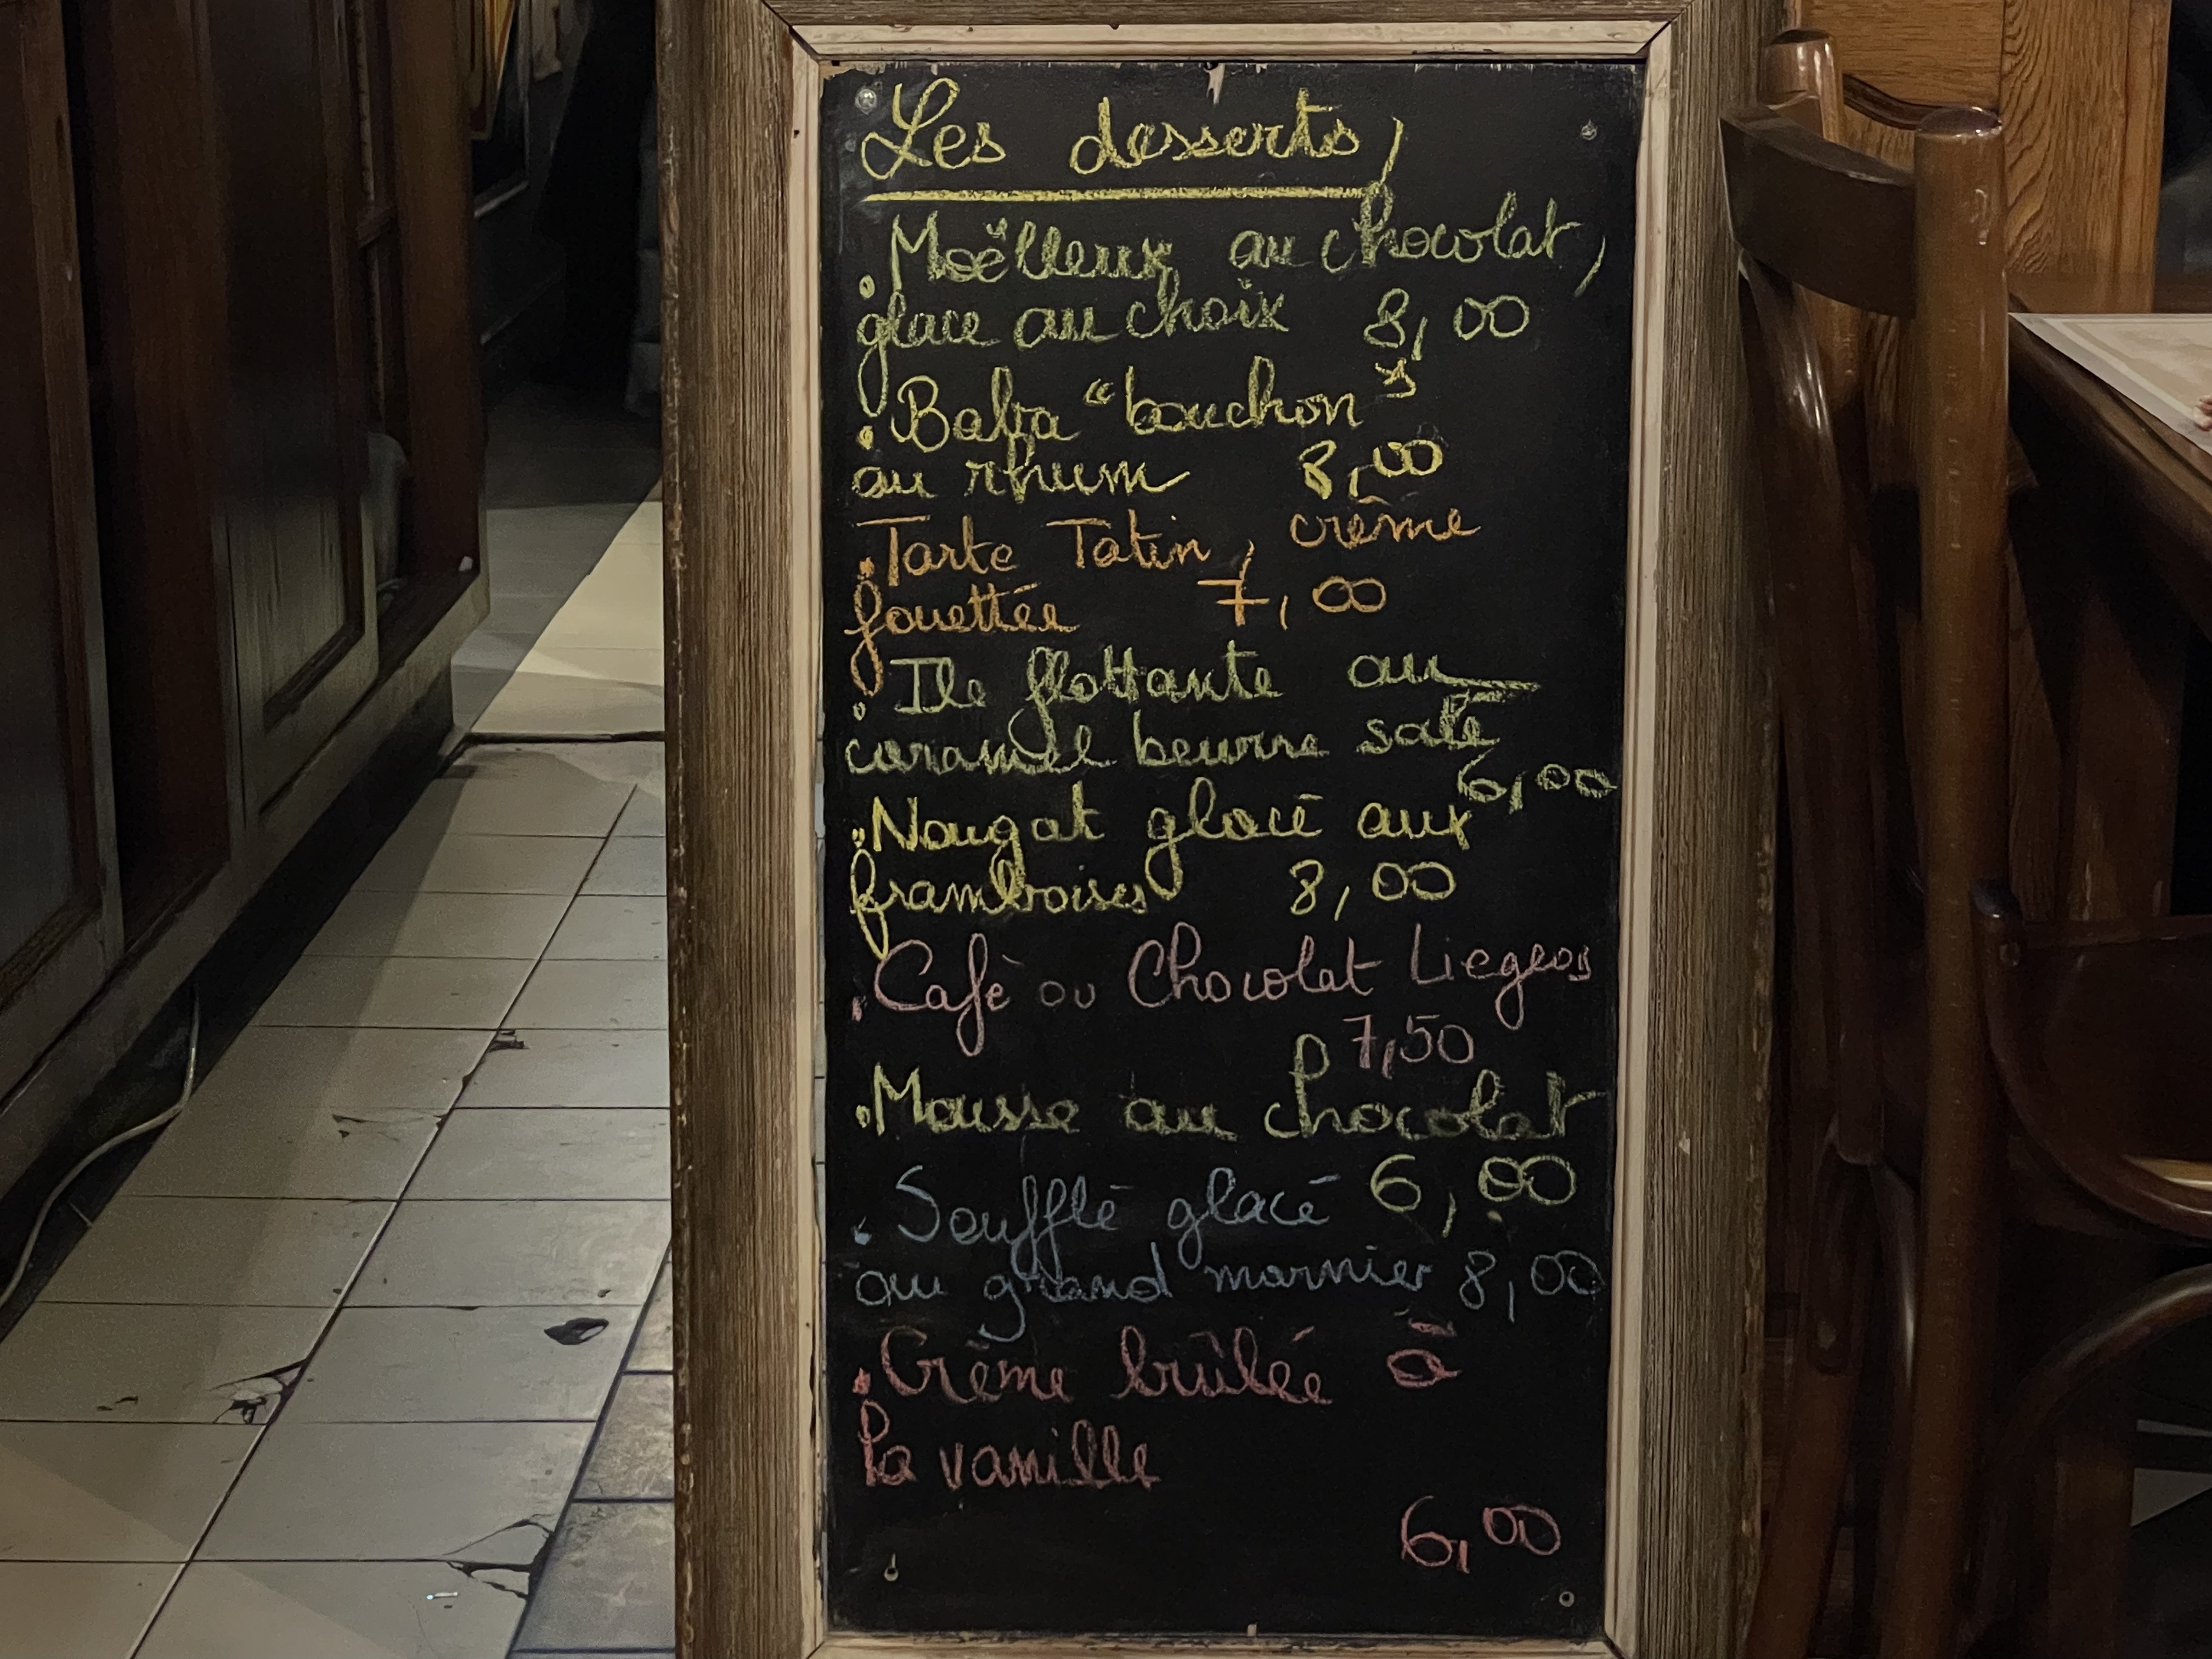 Les desserts,
. Moëlleux au chocolat,
glace au choix 8,00
. Baba "bouchon"
au rhum 8,00
. Tarte Tatin, crême
fouettée 7,00
. Ile flottante au
caramel beurre salé
6,00
. Nougat glacé aux
framboises 8,00
. Café ou Chocolat Liegeos
7,50
. Mousse au chocolat
6,00
. Soufflé glacé
au grand marnier 8,00
. Crème brûlée à
la vanille
6,00